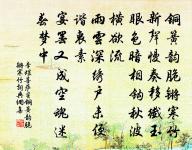 銅簧韵脆鏘寒竹
新聲慢奏移纖玉
眼色暗相鈎秋波
橫欲流
雨雲深綉户未便
諧衷素
宴罷又成空魂迷
春夢中
李煜菩薩蠻銅簧韵脆
鏘寒竹詞